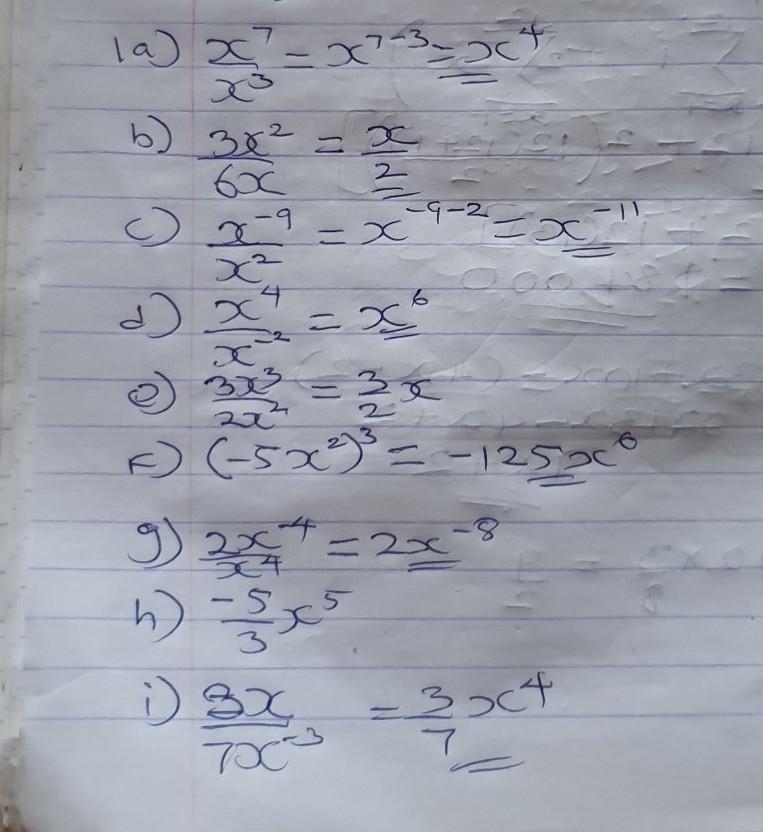 1a) x⁷/x³ = x⁷⁻³ = x⁴
b) 3x²/6x = x/2
c) x⁻⁹/x² = x⁻⁹⁻² = x⁻¹¹
d) x⁴/x⁻² = x⁶
e) 3x³/2x² = 3/2 x
F) (-5x²)³ = -125x⁶
g) 2x⁻⁴/x⁴ = 2x⁻⁸
h) -5/3 x⁵
i) 3x/7x⁻³ = 3/7 x⁴